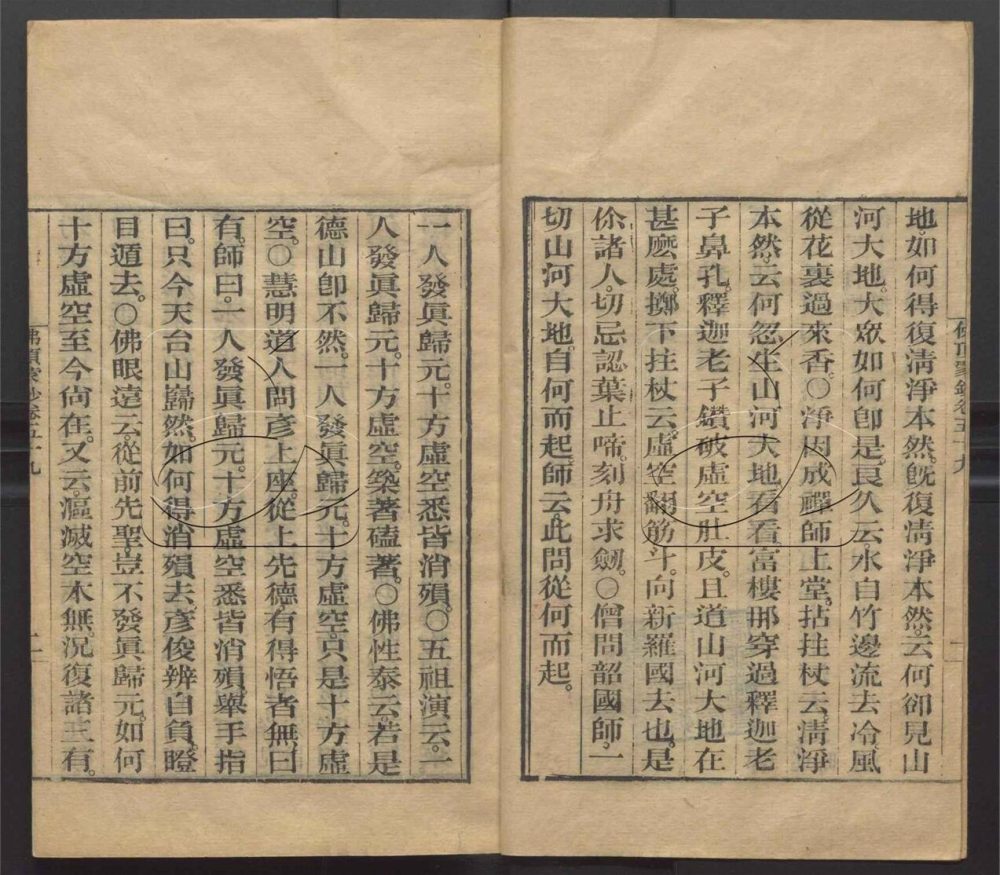 地。如何得復清淨本然。旣復清淨本然。云何卻見山
河大地。大眾如何卽是。良久云。水自竹邊流去冷。風
從花裏過來香。○淨因成禪師上堂。拈拄杖云。淸淨
本然。云何忽生山河大地。看看富樓那穿過釋迦老
子鼻孔。釋迦老子鑽破虛空肚皮。且道山河大地在
甚麽處。擲下拄杖云。虛空翻筋斗。向新羅國去也。是
你諸人。切忌認葉止啼。刻舟求劒。○僧問韶國師。一
切山河大地。自何而起。師云。此問從何而起。
一人發眞歸元。十方虛空悉皆消殞。○五祖演云。一
人發眞歸元。十方虛空。築著磕著。○佛性泰云。若是
德山卽不然。一人發眞歸元。十方虛空。只是十方虛
空。○慧明道人問彥上座。從上先德有得悟者無。曰
有。師曰。一人發眞歸元。十方虛空悉皆消殞。舉手指
曰。只今天台山巋然。如何得消殞去。彥俊辨自負。瞪
目遁去。○佛眼遠云。從前先聖豈不發眞歸元。如何
十方虛空至今尙在。又云。漚滅空本無。況復諸三有。